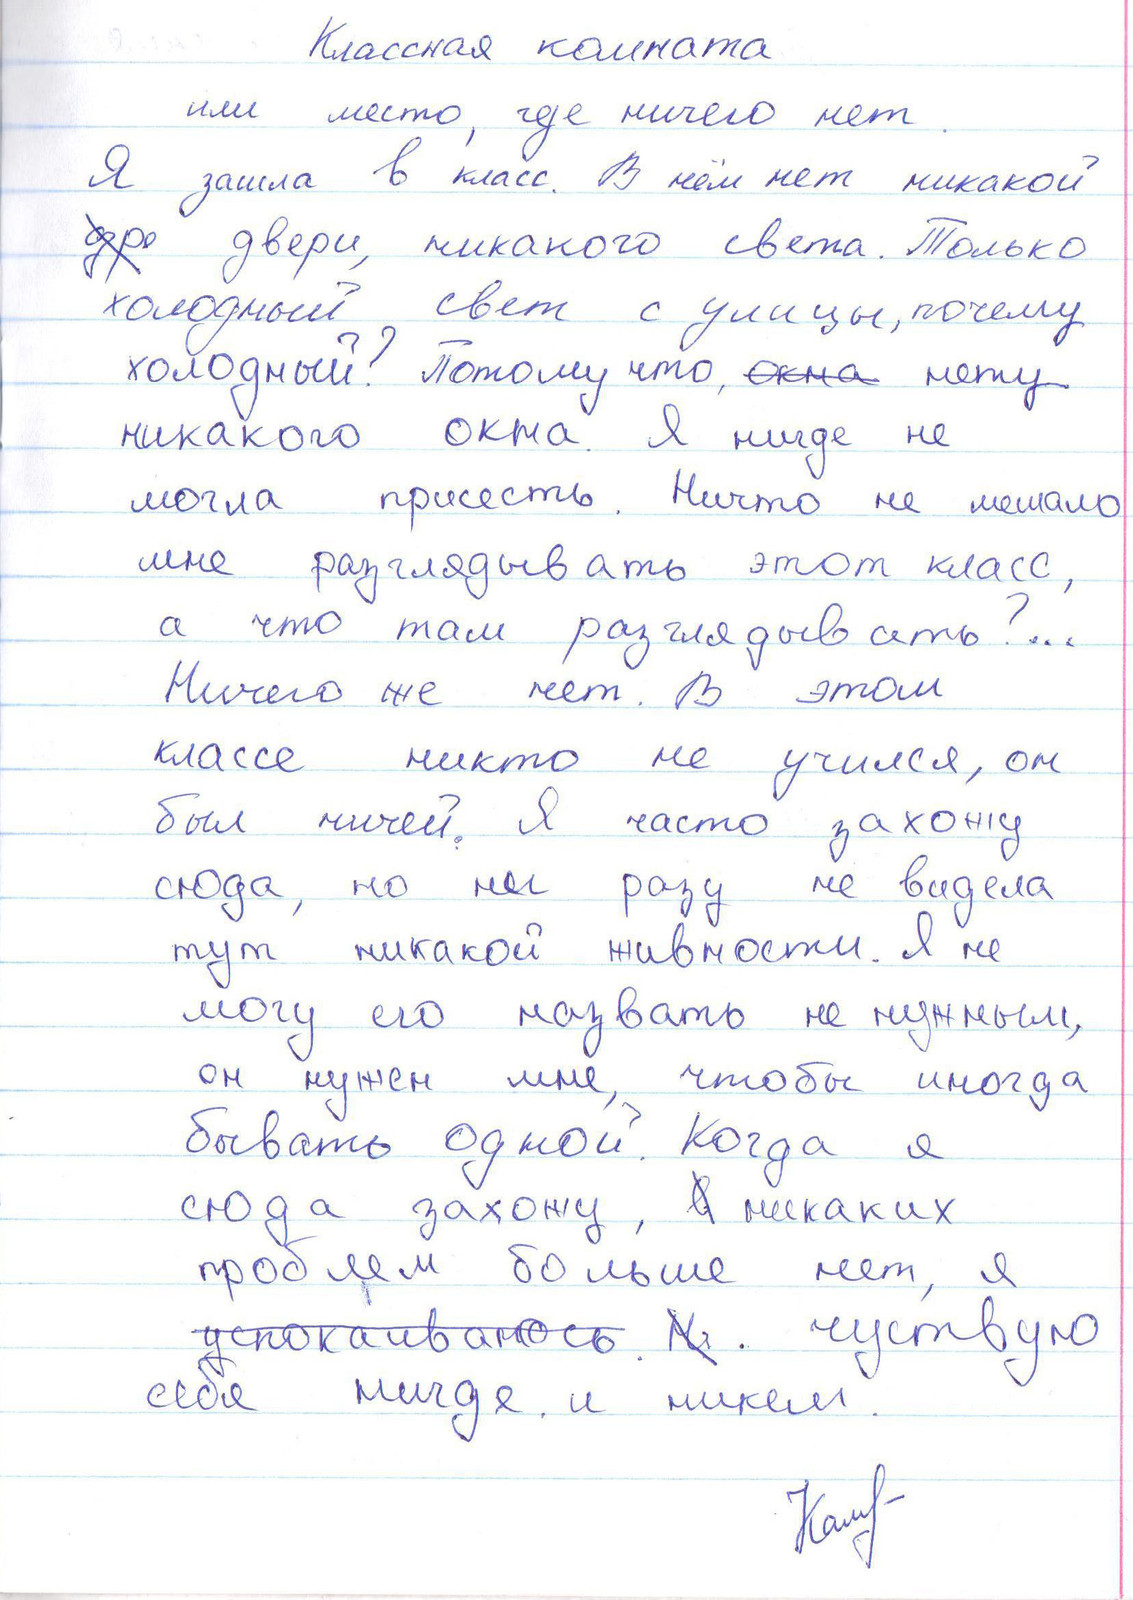 Классная комната
или место, где ничего нет.
Я зашла в класс. В нём нет никакой
двери, никакого света. Только
холодный свет с улицы, почему
холодный? Потому что, окна нету
никакого окна. Я нигде не
могла присесть. Ничто не мешало
мне разглядывать этот класс,
а что там разглядывать?...
Ничего же нет. В этом
классе никто не учился, он
был ничей. Я часто захожу
сюда, но не разу не видела
тут никакой живности. Я не
могу его назвать не нужным,
он нужен мне, чтобы иногда
бывать одной. Когда я
сюда захожу, никаких
проблем больше нет, я
успокаиваюсь. чуствую
себя нигде. и никем.